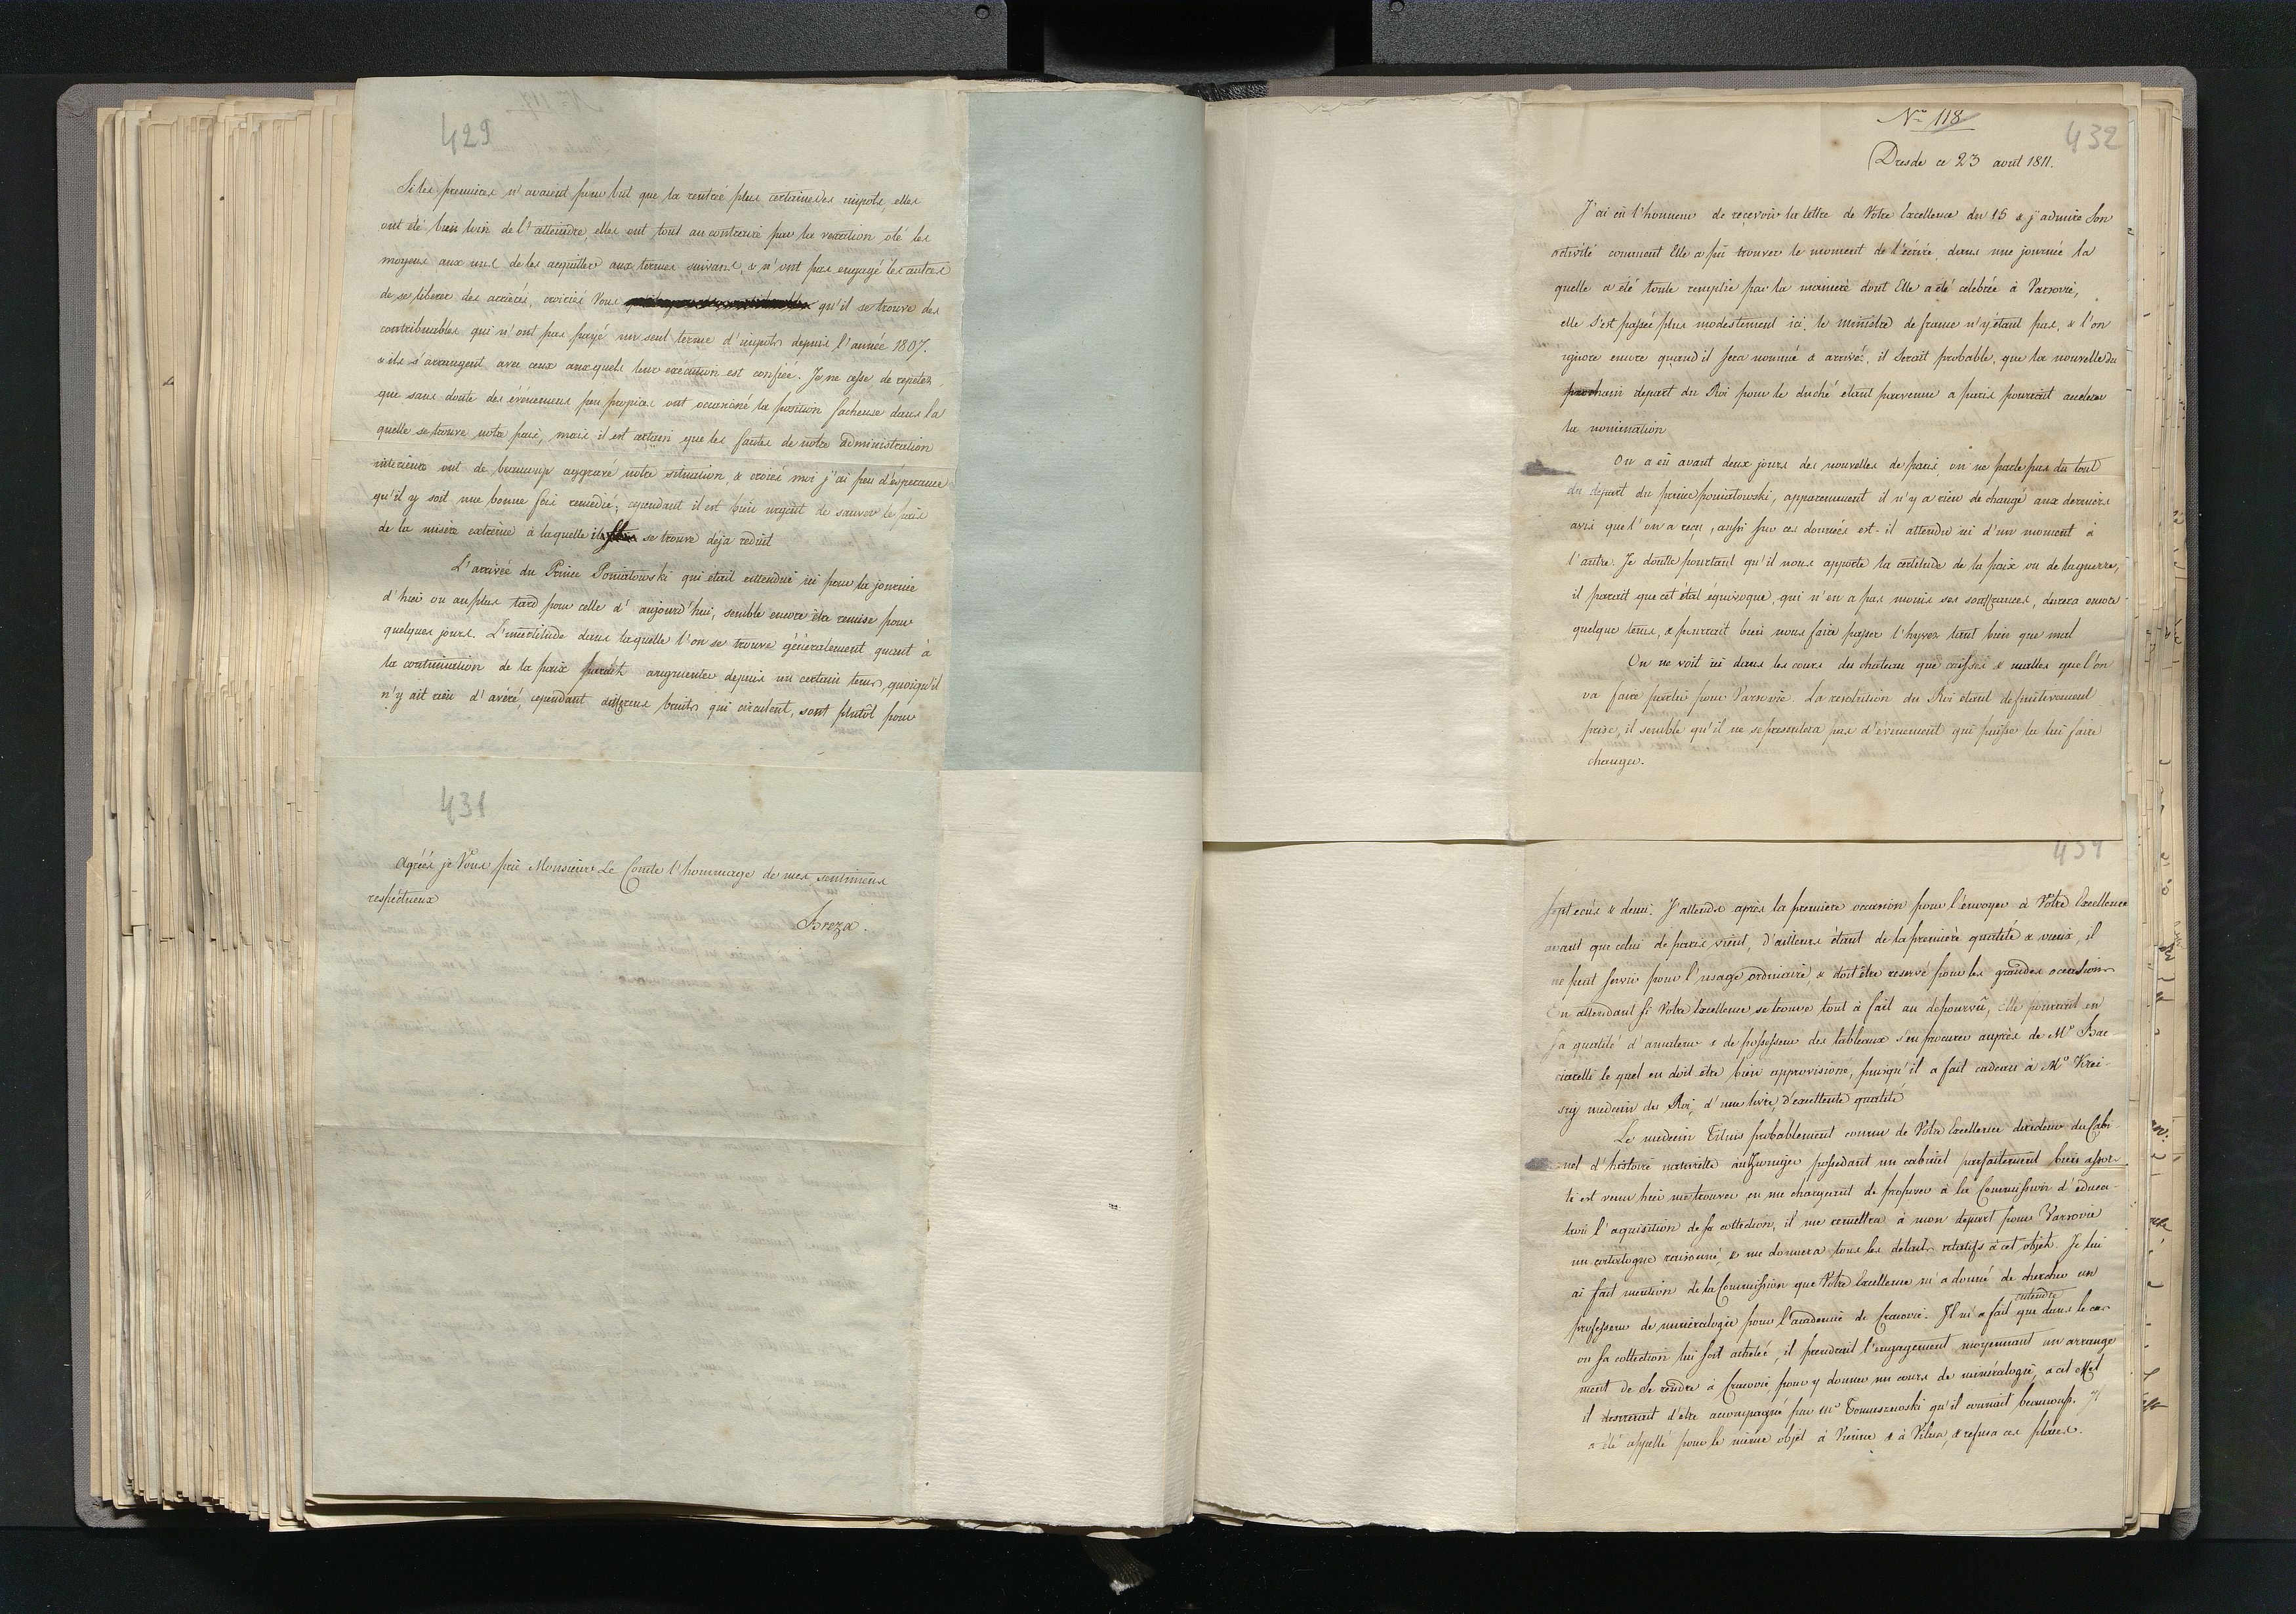 429
Si les premieres n'avaient pour but que la rentrée plus certaine des impots, elles
ont été bien loin de l'atteindre, elles ont tout au contraire par la vexation oté les
moyens aux uns de les acquitter aux termes suivans, & n'ont pas engagé les autres
de se liberer des arrièrés, croiriés Vous qu'il se trouve des
contribuables qui n'ont pas payé un seul terme d'impots depuis l'année 1807.
& ils s'arrangent avec ceux auxquels leur exécution est confiée. Je ne cesse de repeter,
que sans doute des événemens peu propices ont occasioné la position facheuse dans la
quelle se trouve notre païs, mais il est certain que les fautes de notre administration
interieure ont de beaucoup aggravé notre situation, & croiés moi j'ai peu d'ésperance
qu'il y soit une bonne fois remedié; cependant il est bien urgent de sauver le païs
de la misère extrême à laquelle il se trouve déja reduit
L'arrivée du Prince Poniatowski qui était attendüe ici pour la journée
d'hier ou au plus tard pour celle d'aujourd'hui, semble encore être remise pour
quelques jours. L'incertitude dans laquelle l'on se trouve généralement quant à
la continuation de la paix parait augmenter depuis un certain tems, quoiqu'il
n'y ait rien d'avéré, cependant differens bruits qui circulent, sont plutôt pour
431
Agréés je Vous prie Monsieur Le Comte l'hommage de mes sentimens
respectueux
Breza.
No 118
432
Dresde ce 23 aout 1811.
J'ai eü l'honneur de recevoir la lettre de Votre Excellence du 15 & j'admire Son
activité comment Elle a pû trouver le moment de l'écrire, dans une journée la
quelle a été toute remplie par la manière dont Elle a été celebrée à Varsovie,
elle s'est passée plus modestement ici, le ministre de france n'y étant pas, & l'on
ignore encore quand il sera nommé & arrivé, il serait probable, que la nouvelle du
prochain depart du Roi pour le duché etant parvenue a paris pourrait accelerer
la nomination
On a eü avant deux jours des nouvelles de paris on ne parle pas du tout
du départ du prince poniatowski, apparemment il n'y a rien de changé aux derniers
avis que l'on a reçu, aussi sur ces données est-il attendu ici d'un moment à
l'autre. Je doutte pourtant qu'il nous apporte la certitude de la paix ou de la guerre,
il parait que cet état équivoque, qui n'en a pas moins ses souffrances, durera encore
quelque tems, & pourrait bien nous faire passer l'hyver tant bien que mal
On ne voit ici dans les cours du chateau que caisses & malles que l'on
va faire partir pour Varsovie. La resolution du Roi étant definitivement
prise, il semble qu'il ne se presentera pas d'évenement qui puisse la lui faire
changer.
sept ecus & demi. J'attends après la premiere occasion pour l'envoyer à Votre Excellence
avant que celui de paris vient, d'ailleurs étant de la première qualité & vieux, il
ne peut servir pour l'usage ordinaire, & doit être reservé pour les grandes occasions
En attendant si Votre Excellence se trouve tout à fait au depourvû, Elle pourrait en
sa qualité d'amateur & de possesseur des tableaux s'en procurer auprès de Mr Bac-
ciarelli le quel en doit être bien approvisioné, puisqu'il a fait cadeau à Mr Krei-
sig medecin du Roi, d'une livre, d'excellente qualité
Le medecin Titius probablement connu de Votre Excellence directeur du Cabi-
net d'histoire naturelle au Zwinger possedant un cabinet parfaitement bien assor-
ti est venu hier me trouver en me chargeant de proposer à la Commission d'educa-
tion l'aquisition de sa collection, il me remettra à mon depart pour Varsovie
un catalogue raisonné, & me donnera tous les details relatifs à cet objet. Je lui
ai fait mention de la Commission que Votre Excellence m'a donné de chercher un
professeur de minéralogie pour l'academie de Cracovie. Il m'a fait entendre que dans le cas
ou sa collection lui soit achetée, il prendrait l'engagement moyennant un arrange
ment de se rendre à Cracovie pour y donner un cours de minéralogie, a cet effet
il desirerait d'être accompagné par Mr Tomaszewski qu'il connait beaucoup. Il
a été appellé pour le même objet à Vienne & à Vilna, & refusa ces places.